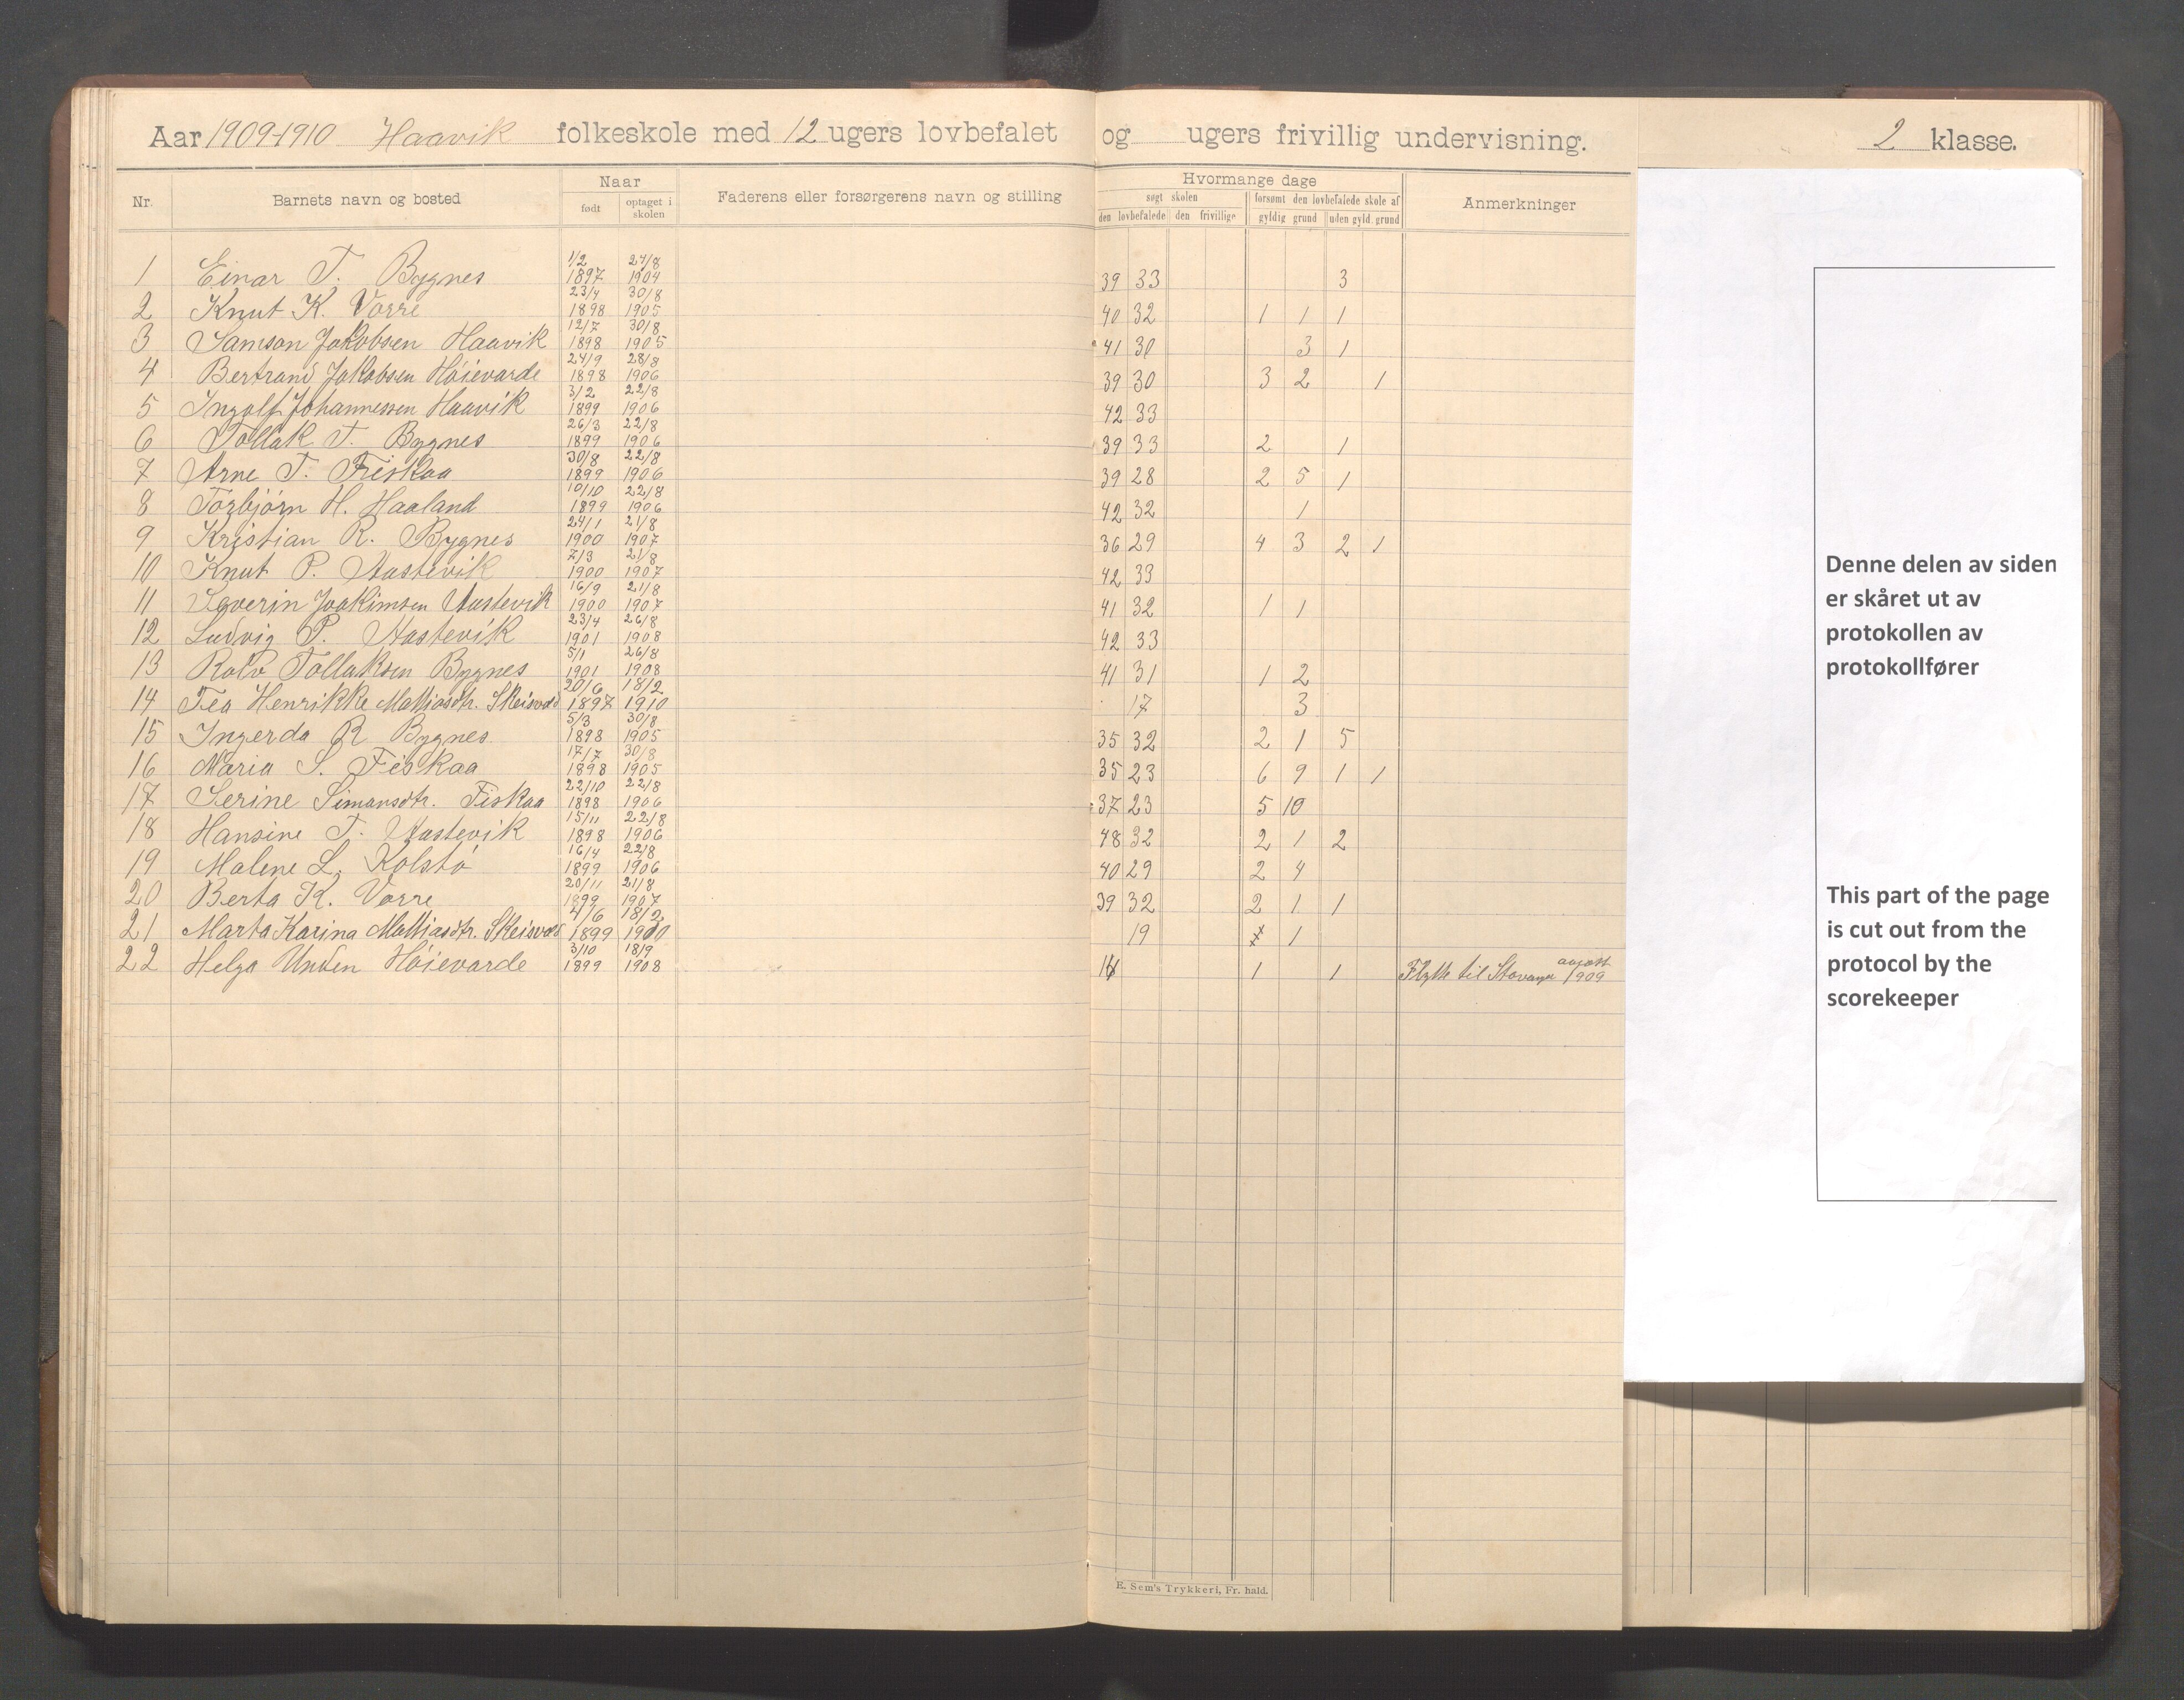 Aar 1909-1910 Haavik folkeskole med 12 ugers lovbefalet og ugers frivillig undervisning. 2 klasse.
Nr. Barnets navn og bosted Naar født optaget i skolen Faderens eller forsørgerens navn og stilling Hvormange dage søgt skolen den lovbefalede den frivillige forsømt den lovbefalede skole af gyldig grund uden gyld. grund Anmerkninger
1 Einar T. Bygnes 1/2 1897 24/8 1904 39 33 3
2 Knut K. Vorre 23/4 1898 30/8 1905 40 32 1 1 1
3 Samson Jakobsen Haavik 12/7 1898 30/8 1905 41 30 3 1
4 Bertrand Jakobsen Høievarde 24/9 1898 28/8 1906 39 30 3 2 1
5 Ingolf Johannessen Haavik 3/2 1899 22/8 1906 42 33
6 Tollak T. Bygnes 26/3 1899 22/8 1906 39 33 2 1
7 Arne T. Fiskaa 30/8 1899 22/8 1906 39 28 2 5 1
8 Torbjørn H. Haaland 10/10 1899 22/8 1906 42 32 1
9 Kristian R. Bygnes 24/1 1900 21/8 1907 36 29 4 3 2 1
10 Knut P. Aastevik 7/3 1900 21/8 1907 42 33
11 Severin Joakimsen Aastevik 16/9 1900 21/8 1907 41 32 1 1
12 Ludvig P. Aastevik 23/4 1901 26/8 1908 42 33
13 Rolv Tollaksen Bygnes 5/1 1901 26/8 1908 41 31 1 2
14 Tea Henrikke Mattiasdtr. Skeisvold 20/6 1897 18/2 1910 17 3
15 Ingerda R Bygnes 5/3 1898 30/8 1905 35 32 2 1 5
16 Maria S. Fiskaa 17/7 1898 30/8 1905 35 23 6 9 1 1
17 Serine Simonsdtr. Fiskaa 22/10 1898 22/8 1906 37 23 5 10
18 Hansine T. Aastevik 15/11 1898 22/8 1906 48 32 2 1 2
19 Malene L. Kolstø 16/4 1899 22/8 1906 40 29 2 4
20 Berta K. Vorre 20/11 1899 21/8 1907 39 32 2 1 1
21 Marta Karina Mattiasdtr. Skeisvold 4/6 1899 18/2 1910 19 1
22 Helga Unden Høievarde 3/10 1899 18/9 1908 1 1 Flytte til Stavanger august 1909
E. Sem's Trykkeri, Fr. hald.
Denne delen av siden
er skåret ut av
protokollen av
protokollfører
This part of the page
is cut out from the
protocol by the
scorekeeper